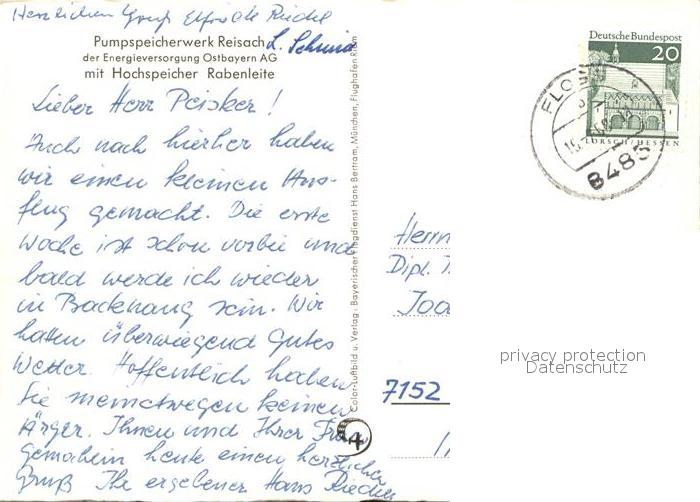 Herzlichen Gruß Elfriede Riedel
L. Schmid
Pumpspeicherwerk Reisach
der Energieversorgung Ostbayern AG
mit Hochspeicher Rabenleite
Lieber Herr Peisker!
Auch nach hierher haben
wir einen kleinen Aus-
flug gemacht. Die erste
Woche ist schon vorbei und
bald werde ich wieder
in Backnang sein. Wir
hatten überwiegend gutes
Wetter. Hoffentlich haben
Sie meinetwegen keinen
Ärger. Ihnen und Ihrer Frau
Gemahlin heute einen herzlichen
Gruß Ihr ergebener Hans Riedel
Color-Luftbild u. Verlag: Bayerischer Flugdienst Hans Bertram, München, Flughafen Riem
Deutsche Bundespost
20
LORSCH/HESSEN
FLOSS
8485
Herrn
Dipl.
7152
privacy protection
Datenschutz